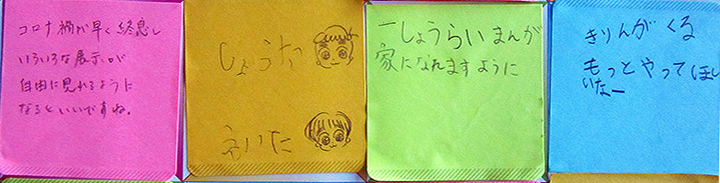 コロナ禍が早く終息し
いろいろな展示が
自由に見れるように
なるといいですね。
しょうた
えいた
一しょうらいまんが
家になれますように
きりんがくる
もっとやってほし
いなー